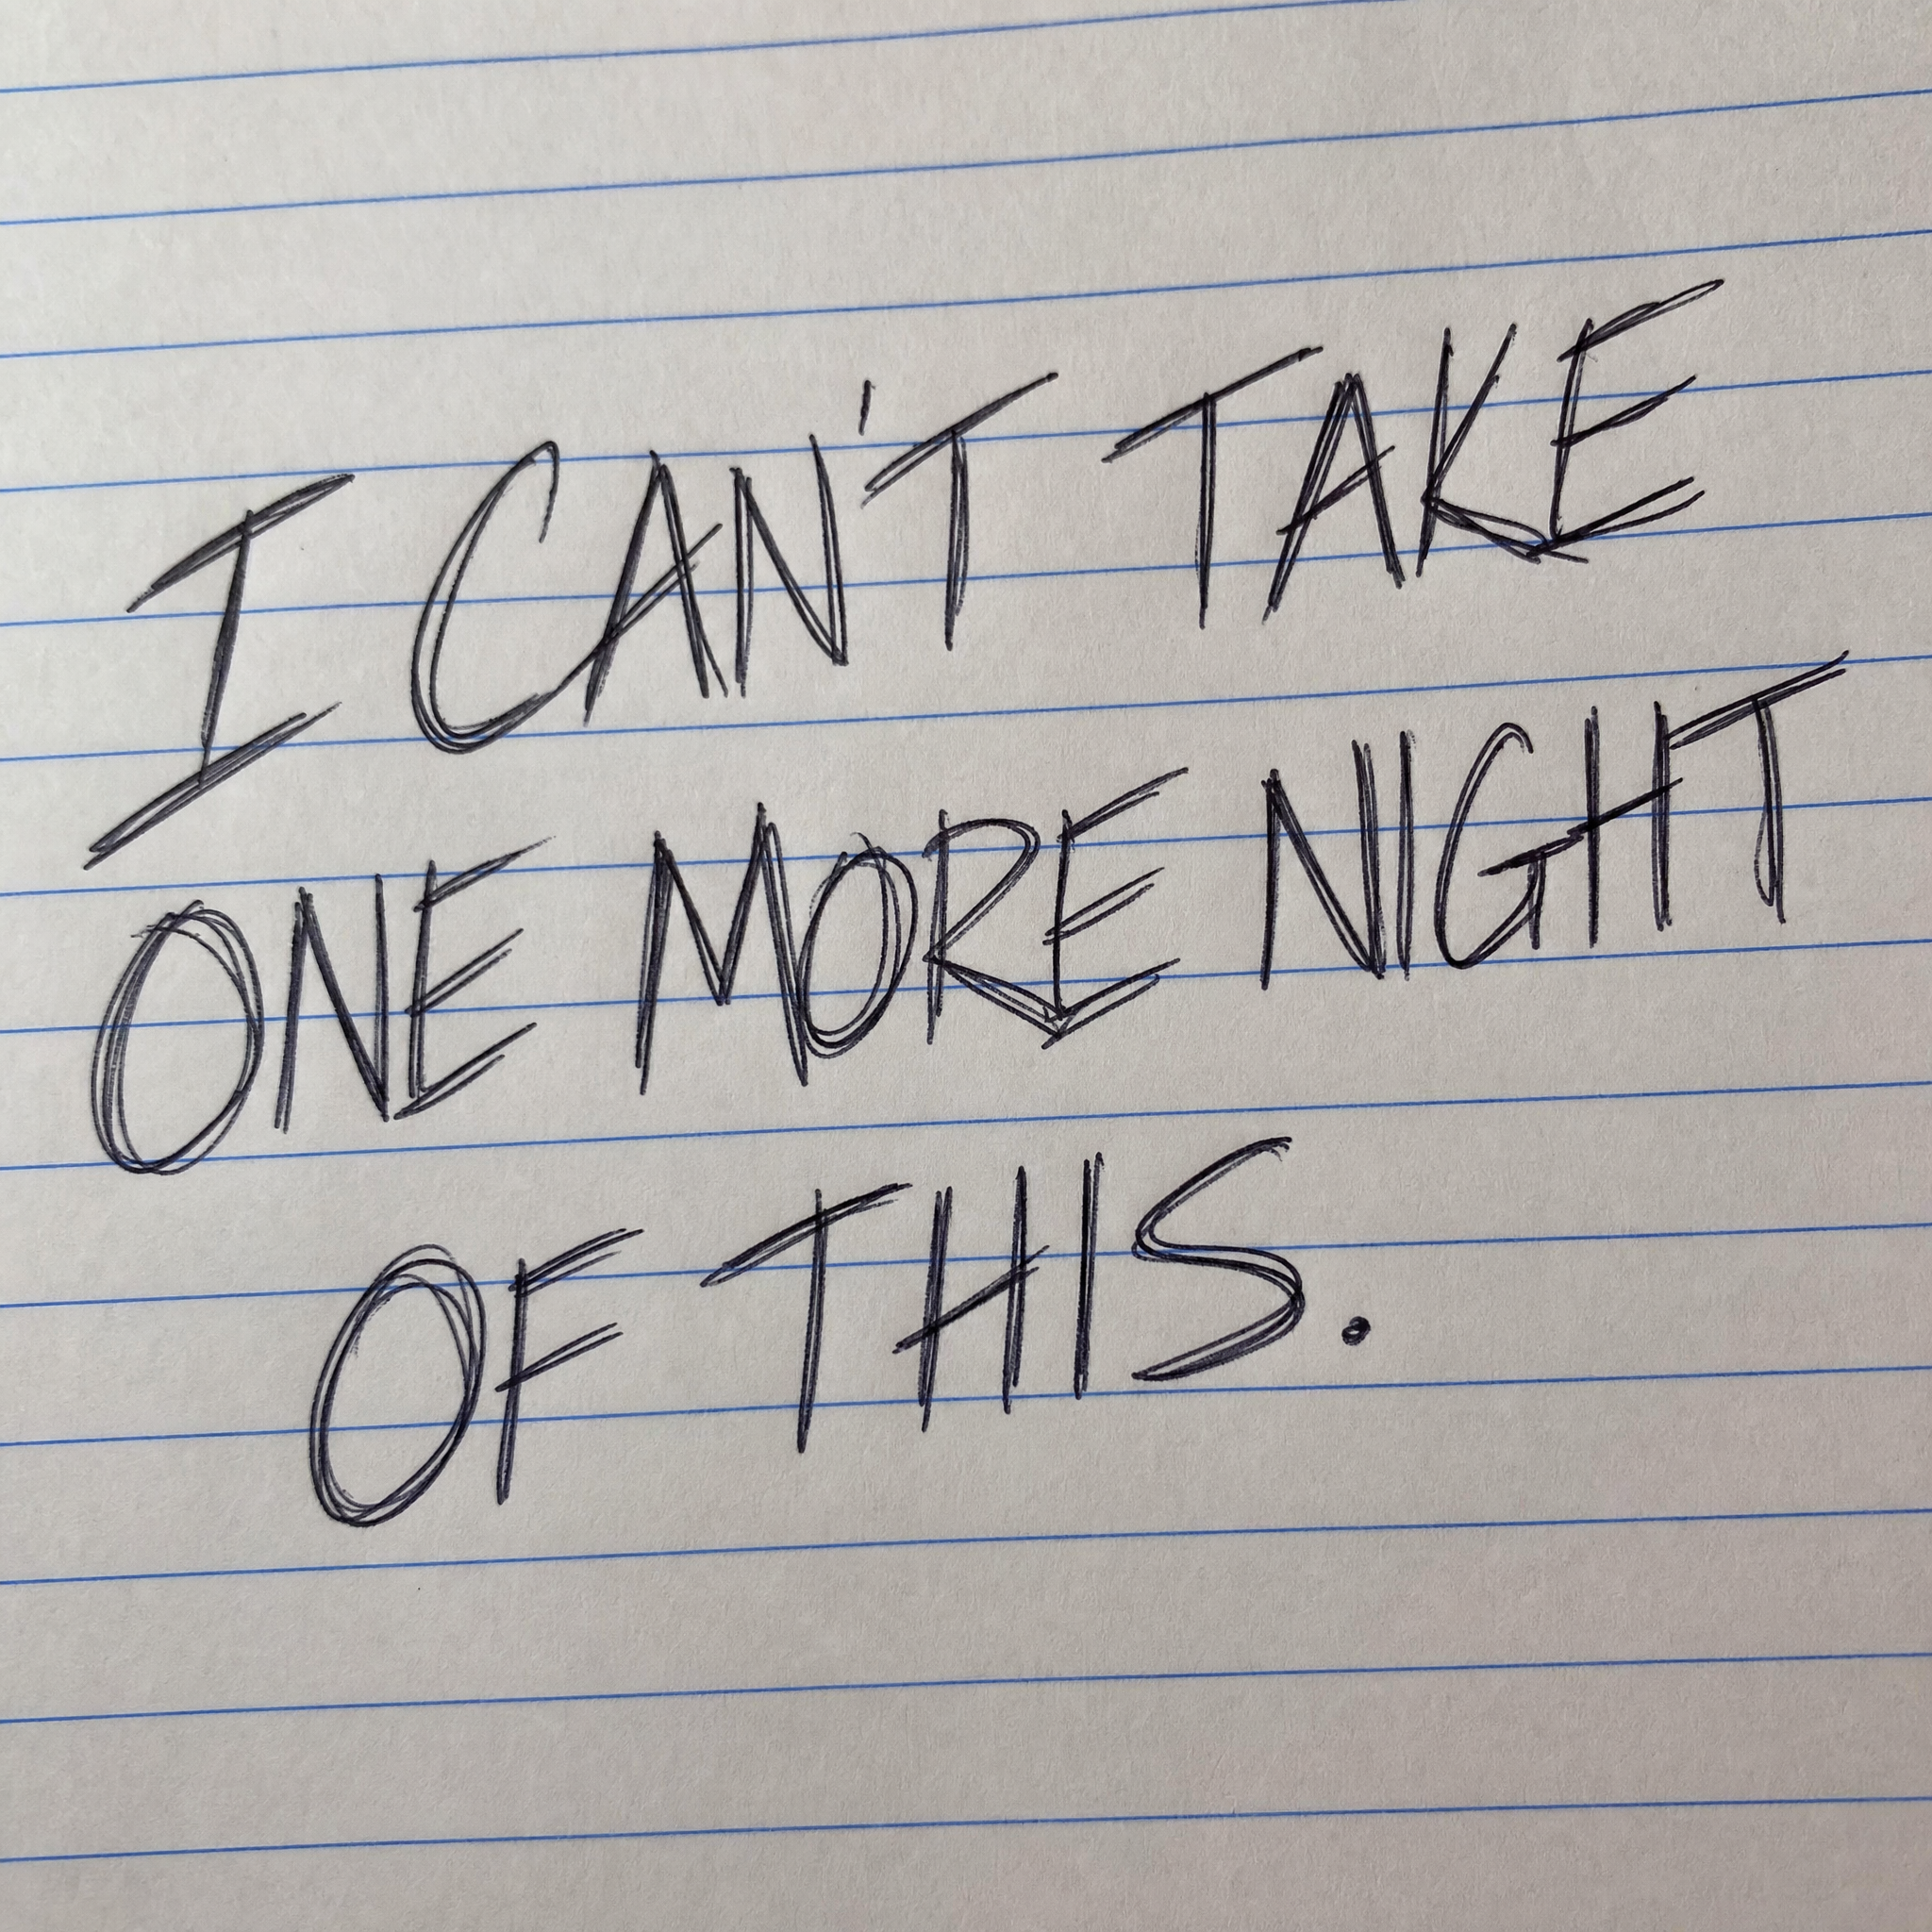 I CAN'T TAKE
ONE MORE NIGHT
OF THIS.